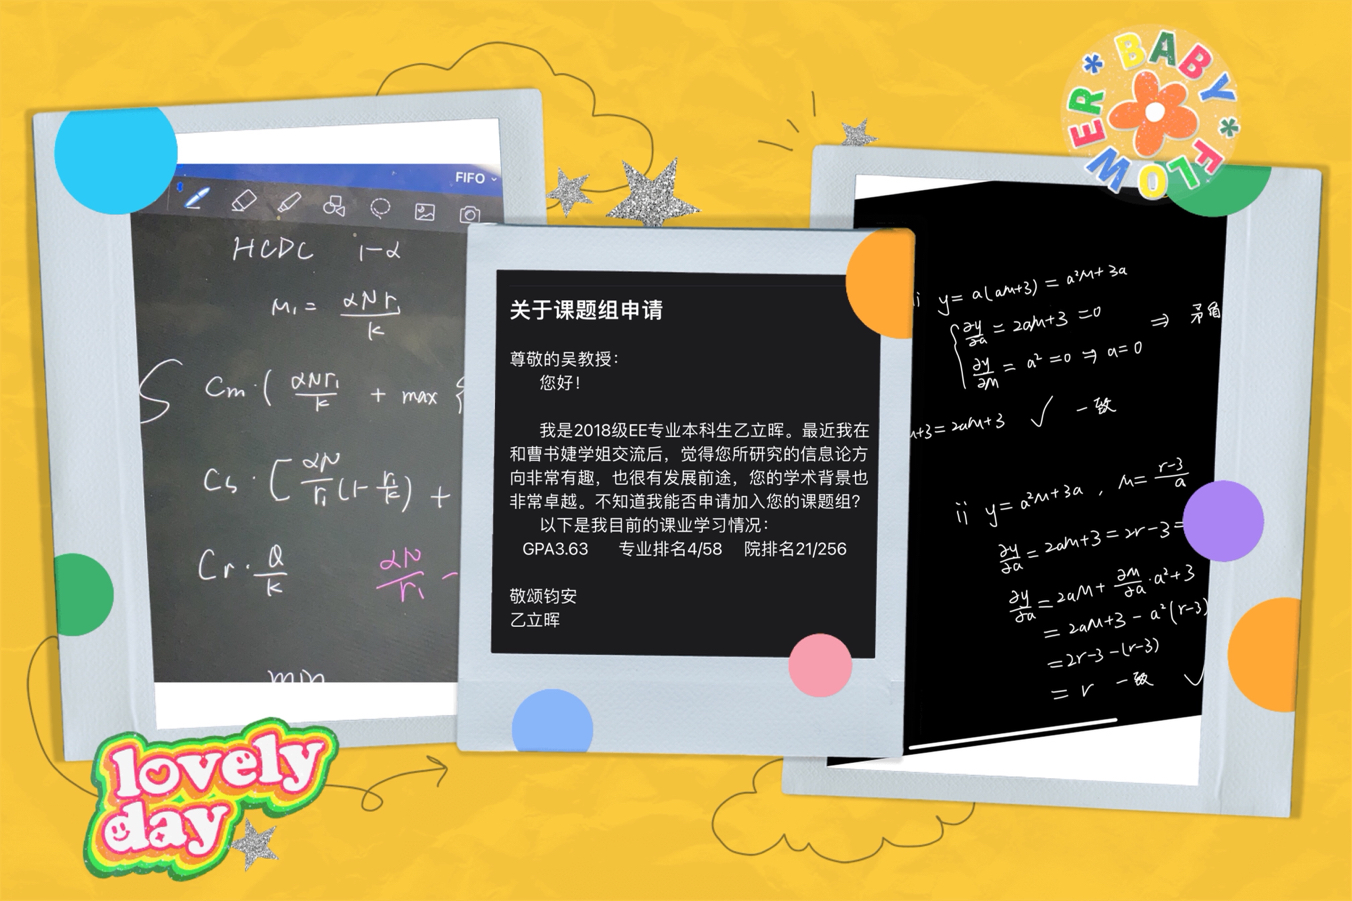 BABY * FLOWER *
FIFO
HCDC 1-α
M₁ = αNr₁/k
Cm·( αNr₁/k + max {
Cs·[ αN/r₁ (1 - r₁/k) +
Cr· Q/k
αN/r₁ -
min
关于课题组申请
尊敬的吴教授：
您好！
我是2018级EE专业本科生乙立晖。最近我在
和曹书婕学姐交流后，觉得您所研究的信息论方
向非常有趣，也很有发展前途，您的学术背景也
非常卓越。不知道我能否申请加入您的课题组？
以下是我目前的课业学习情况：
GPA3.63 专业排名4/58 院排名21/256
敬颂钧安
乙立晖
ii y = a(am+3) = a²m+3a
∂y/∂a = 2am+3 = 0
∂y/∂m = a² = 0 ⇒ a=0
⇒ 矛盾
+3 = 2am+3 ✓ 一致
ii y = a²m+3a , m = (r-3)/a
∂y/∂a = 2am+3 = 2r-3 =
∂y/∂a = 2am + ∂m/∂a · a² + 3
= 2am+3 - a²(r-3)
= 2r-3-(r-3)
= r 一致 ✓
lovely
day